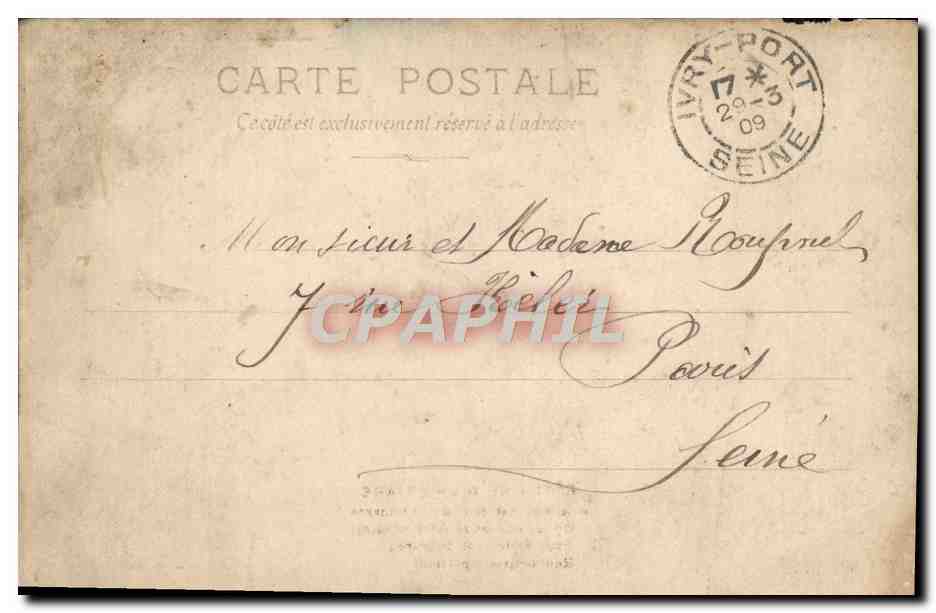 CARTE POSTALE
Ce côté est exclusivement réservé à l'adresse
IVRY-PORT
17 * 3
29 - 3
09
SEINE
Monsieur et Madame
7 rue Kléber
CPAPHIL
Paris
Seine